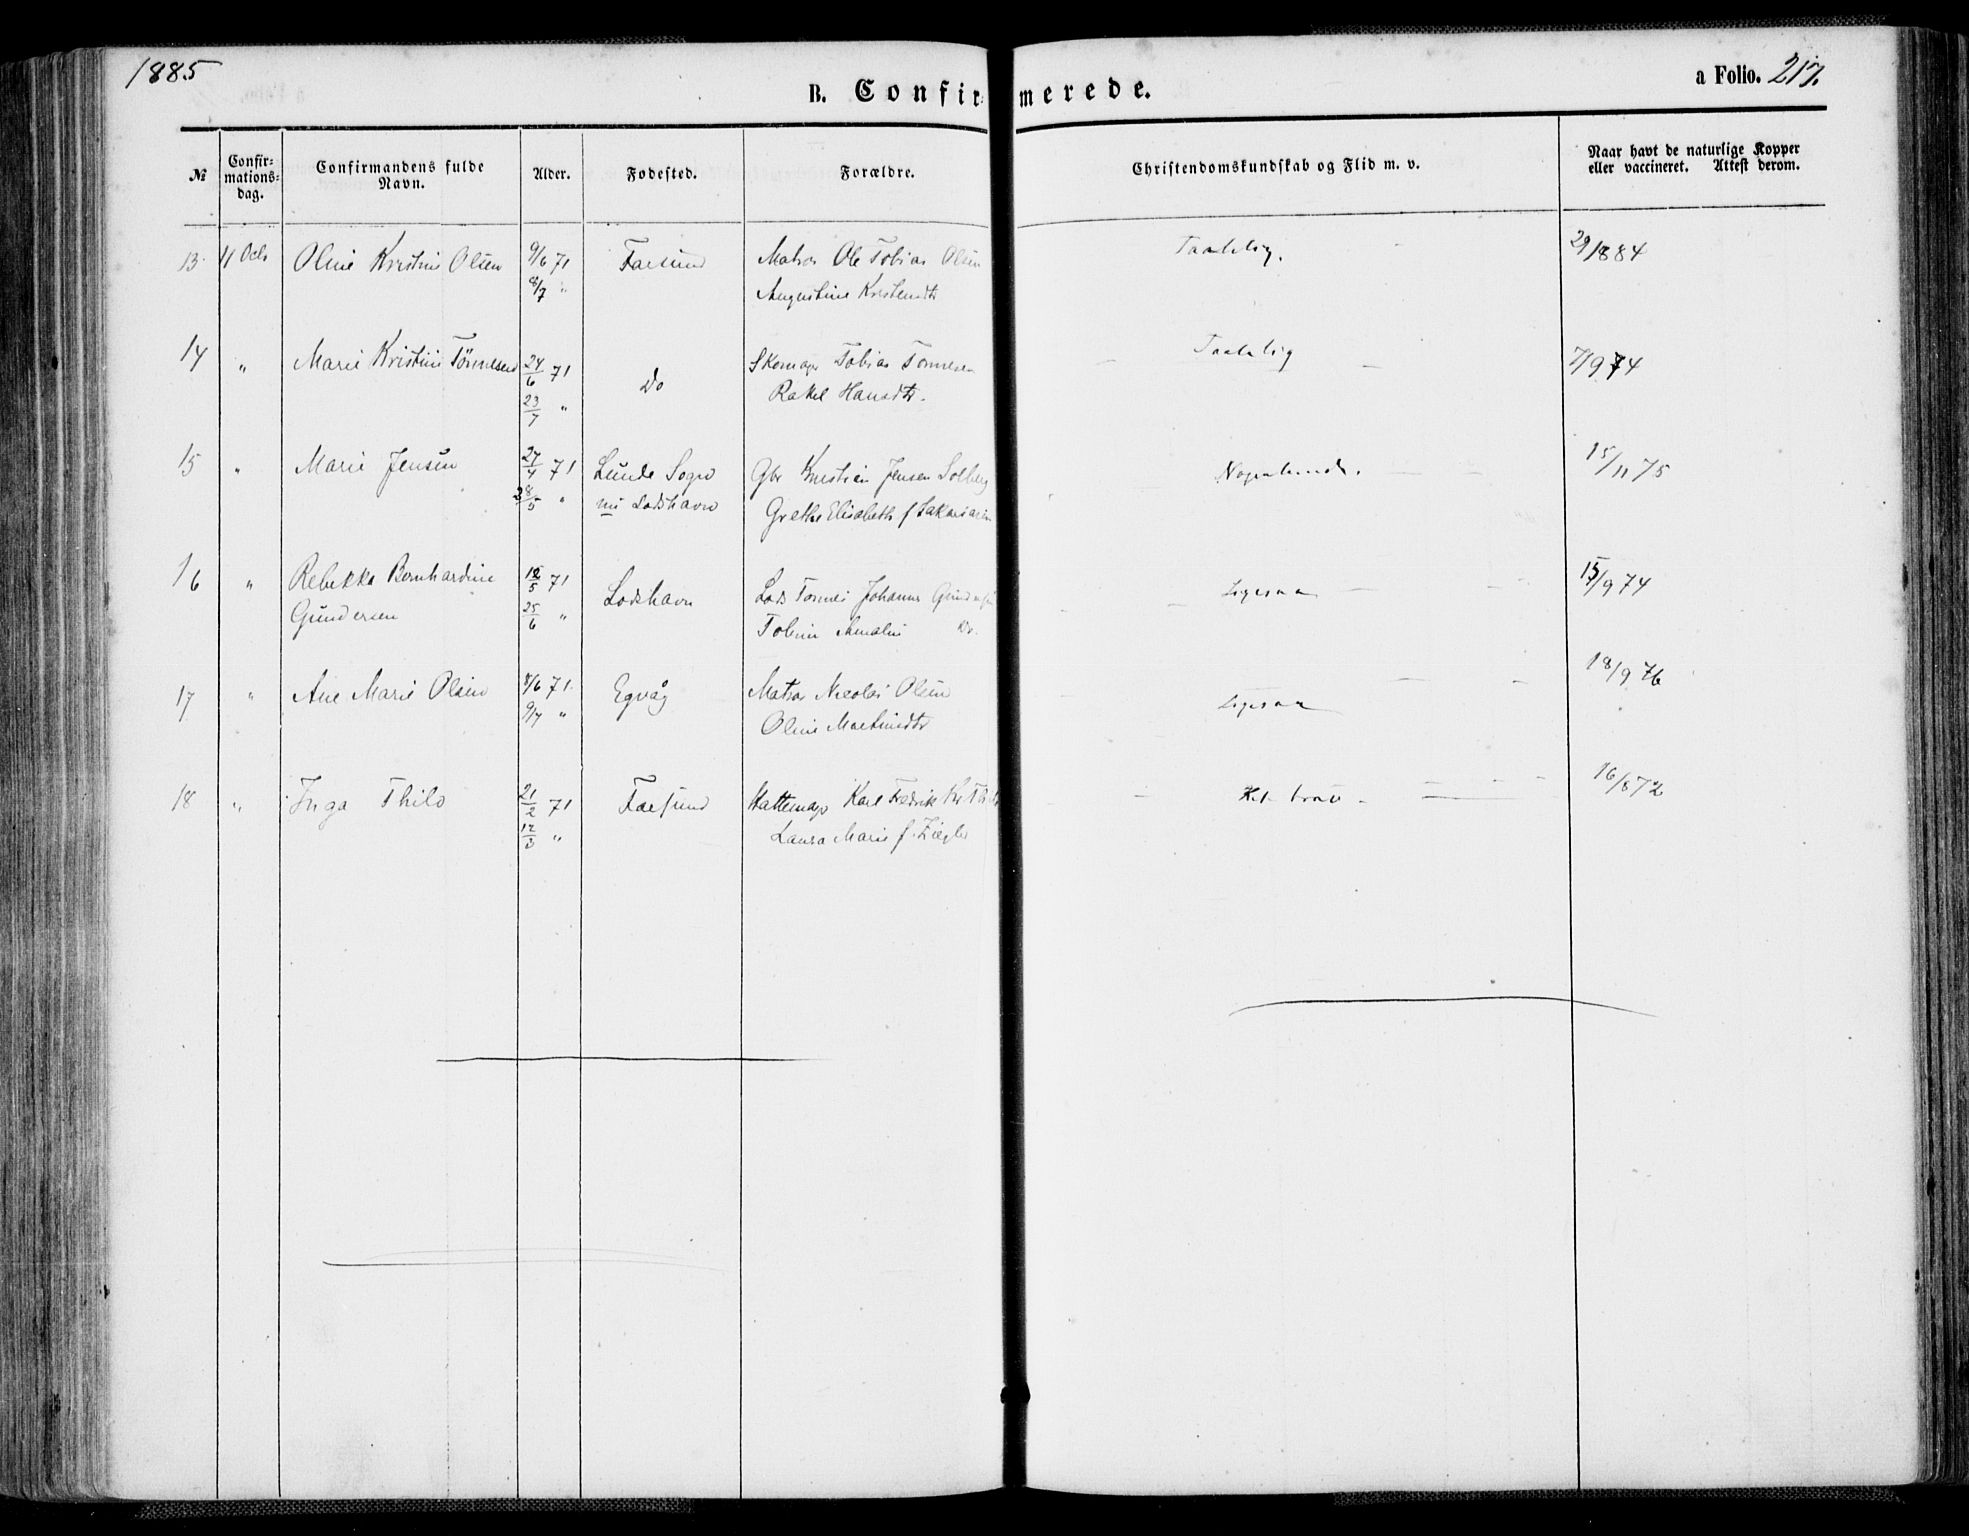 1885
B. Confirmerede.
a Folio. 217.
№ Confirmationsdag. Confirmandens fulde Navn. Alder. Fødested. Forældre. Christendomskundskab og Flid m. v. Naar havt de naturlige Kopper eller vaccineret. Attest derom.
13. 11 Octb Oline Kristine Olsen 9/6 71 Farsund Matros Ole Tobias Olsen Taalelig. 29/8 84
8/7 " Augustine
14 " Marie Kristine Tönnesen 24/6 71 Do Skomager Tobias Tönnesen Taalelig 7/9 74
23/7 " Rakel Hansdtr.
15 " Marie Jensen 27/4 71 Lunde Sogn Gbr Kristian Jensen Solberg Nogenlunde. 15/11 75
28/5 " nu Lodshavn Grethe Elisabeth f
16 " Rebekka Bernhardine 18/5 71 Lodshavn Lods Tönnes Johannes Gundersen Ligesaa 15/9 74
Gundersen 25/6 " Tobine Amalie Do.
17 " Ane Marie Olsen 8/6 71 Egvåg Matros Nicolai Olsen Ligesaa 18/9 76
9/7 " Oline Martinsdtr
18 " Inga Thilo 21/2 71 Farsund Hattemager Karl Fredrik Thilo Hel. brav. 16/8 72
12/3 " Laura Marie f. Ziegler